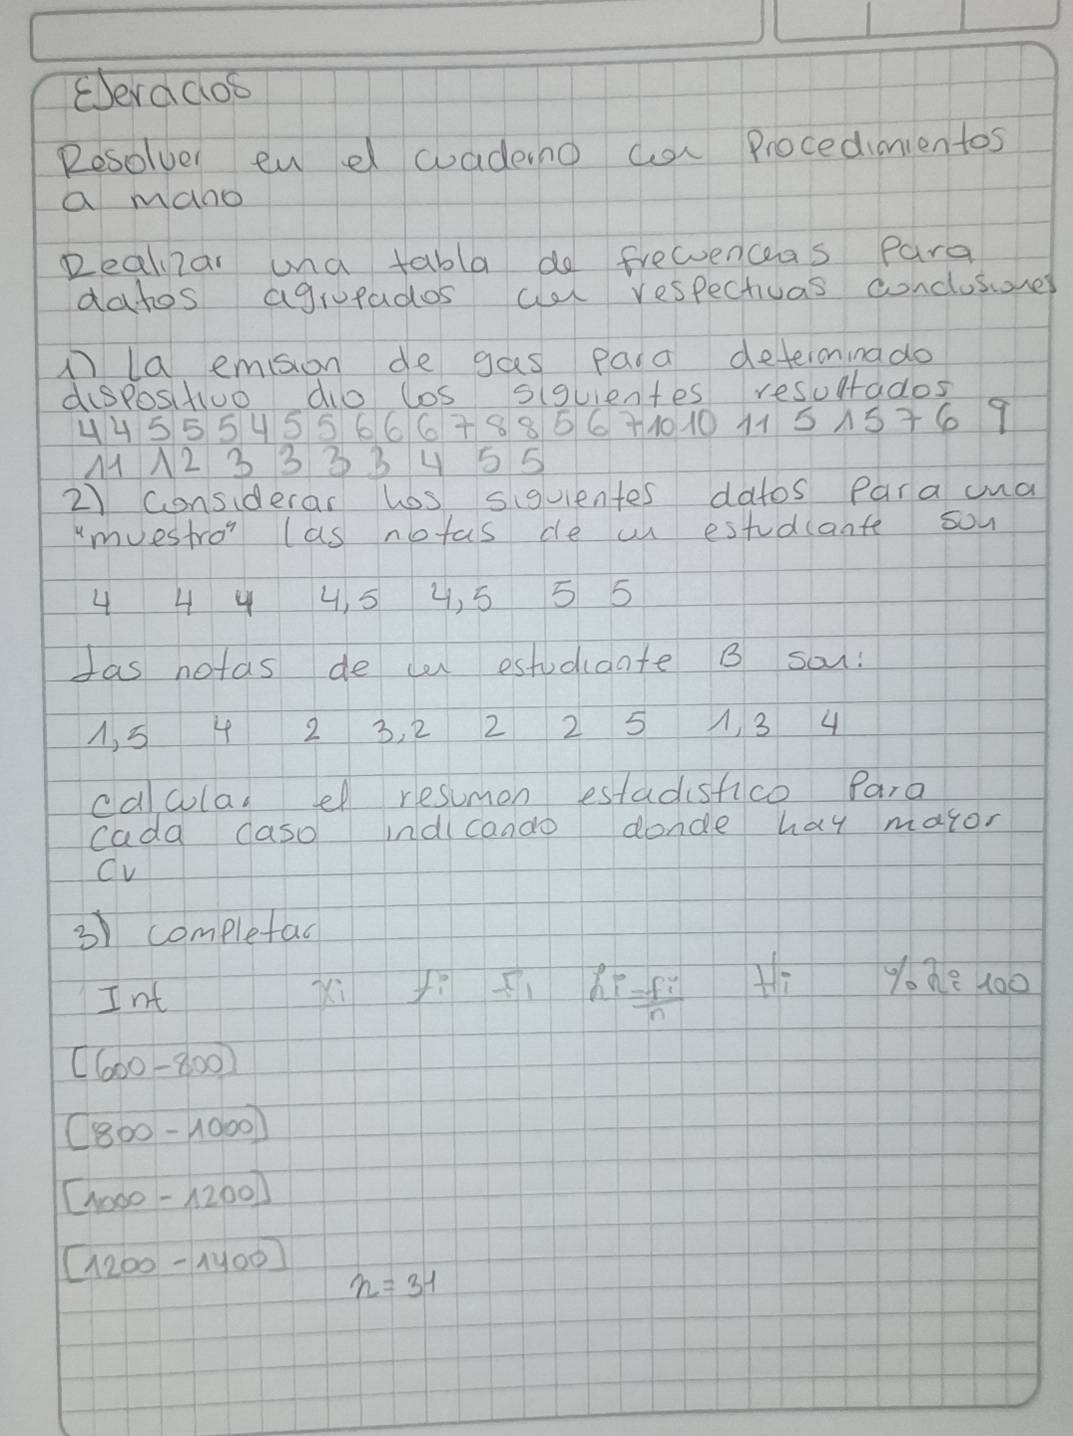 Ejercicios
Resolver en el cuaderno con Procedimientos
a mano
Realizar una tabla de frecuencias Para
datos agrupados con respectivas conclusiones
1) la emision de gas Para determinado
dispositivo dio los siguientes resultados
4 4 5 5 5 4 5 5 6 6 6 7 8 8 5 6 7 10 10 11 5 15 7 6 9
11 12 3 3 3 3 4 5 5
2) Considerar los siguientes datos Para una
"muestra" las notas de un estudiante son
4 4 4 4,5 4,5 5 5
las notas de un estudiante B son:
1,5 4 2 3,2 2 2 5 1,3 4
calcular el resumen estadistico Para
cada caso indicando donde hay mayor
CV
3) completar
Int xi fi Fi hi=fi/n Hi % hi 100
[600-800)
[800-1000)
[1000-1200)
[1200-1400]
n=31